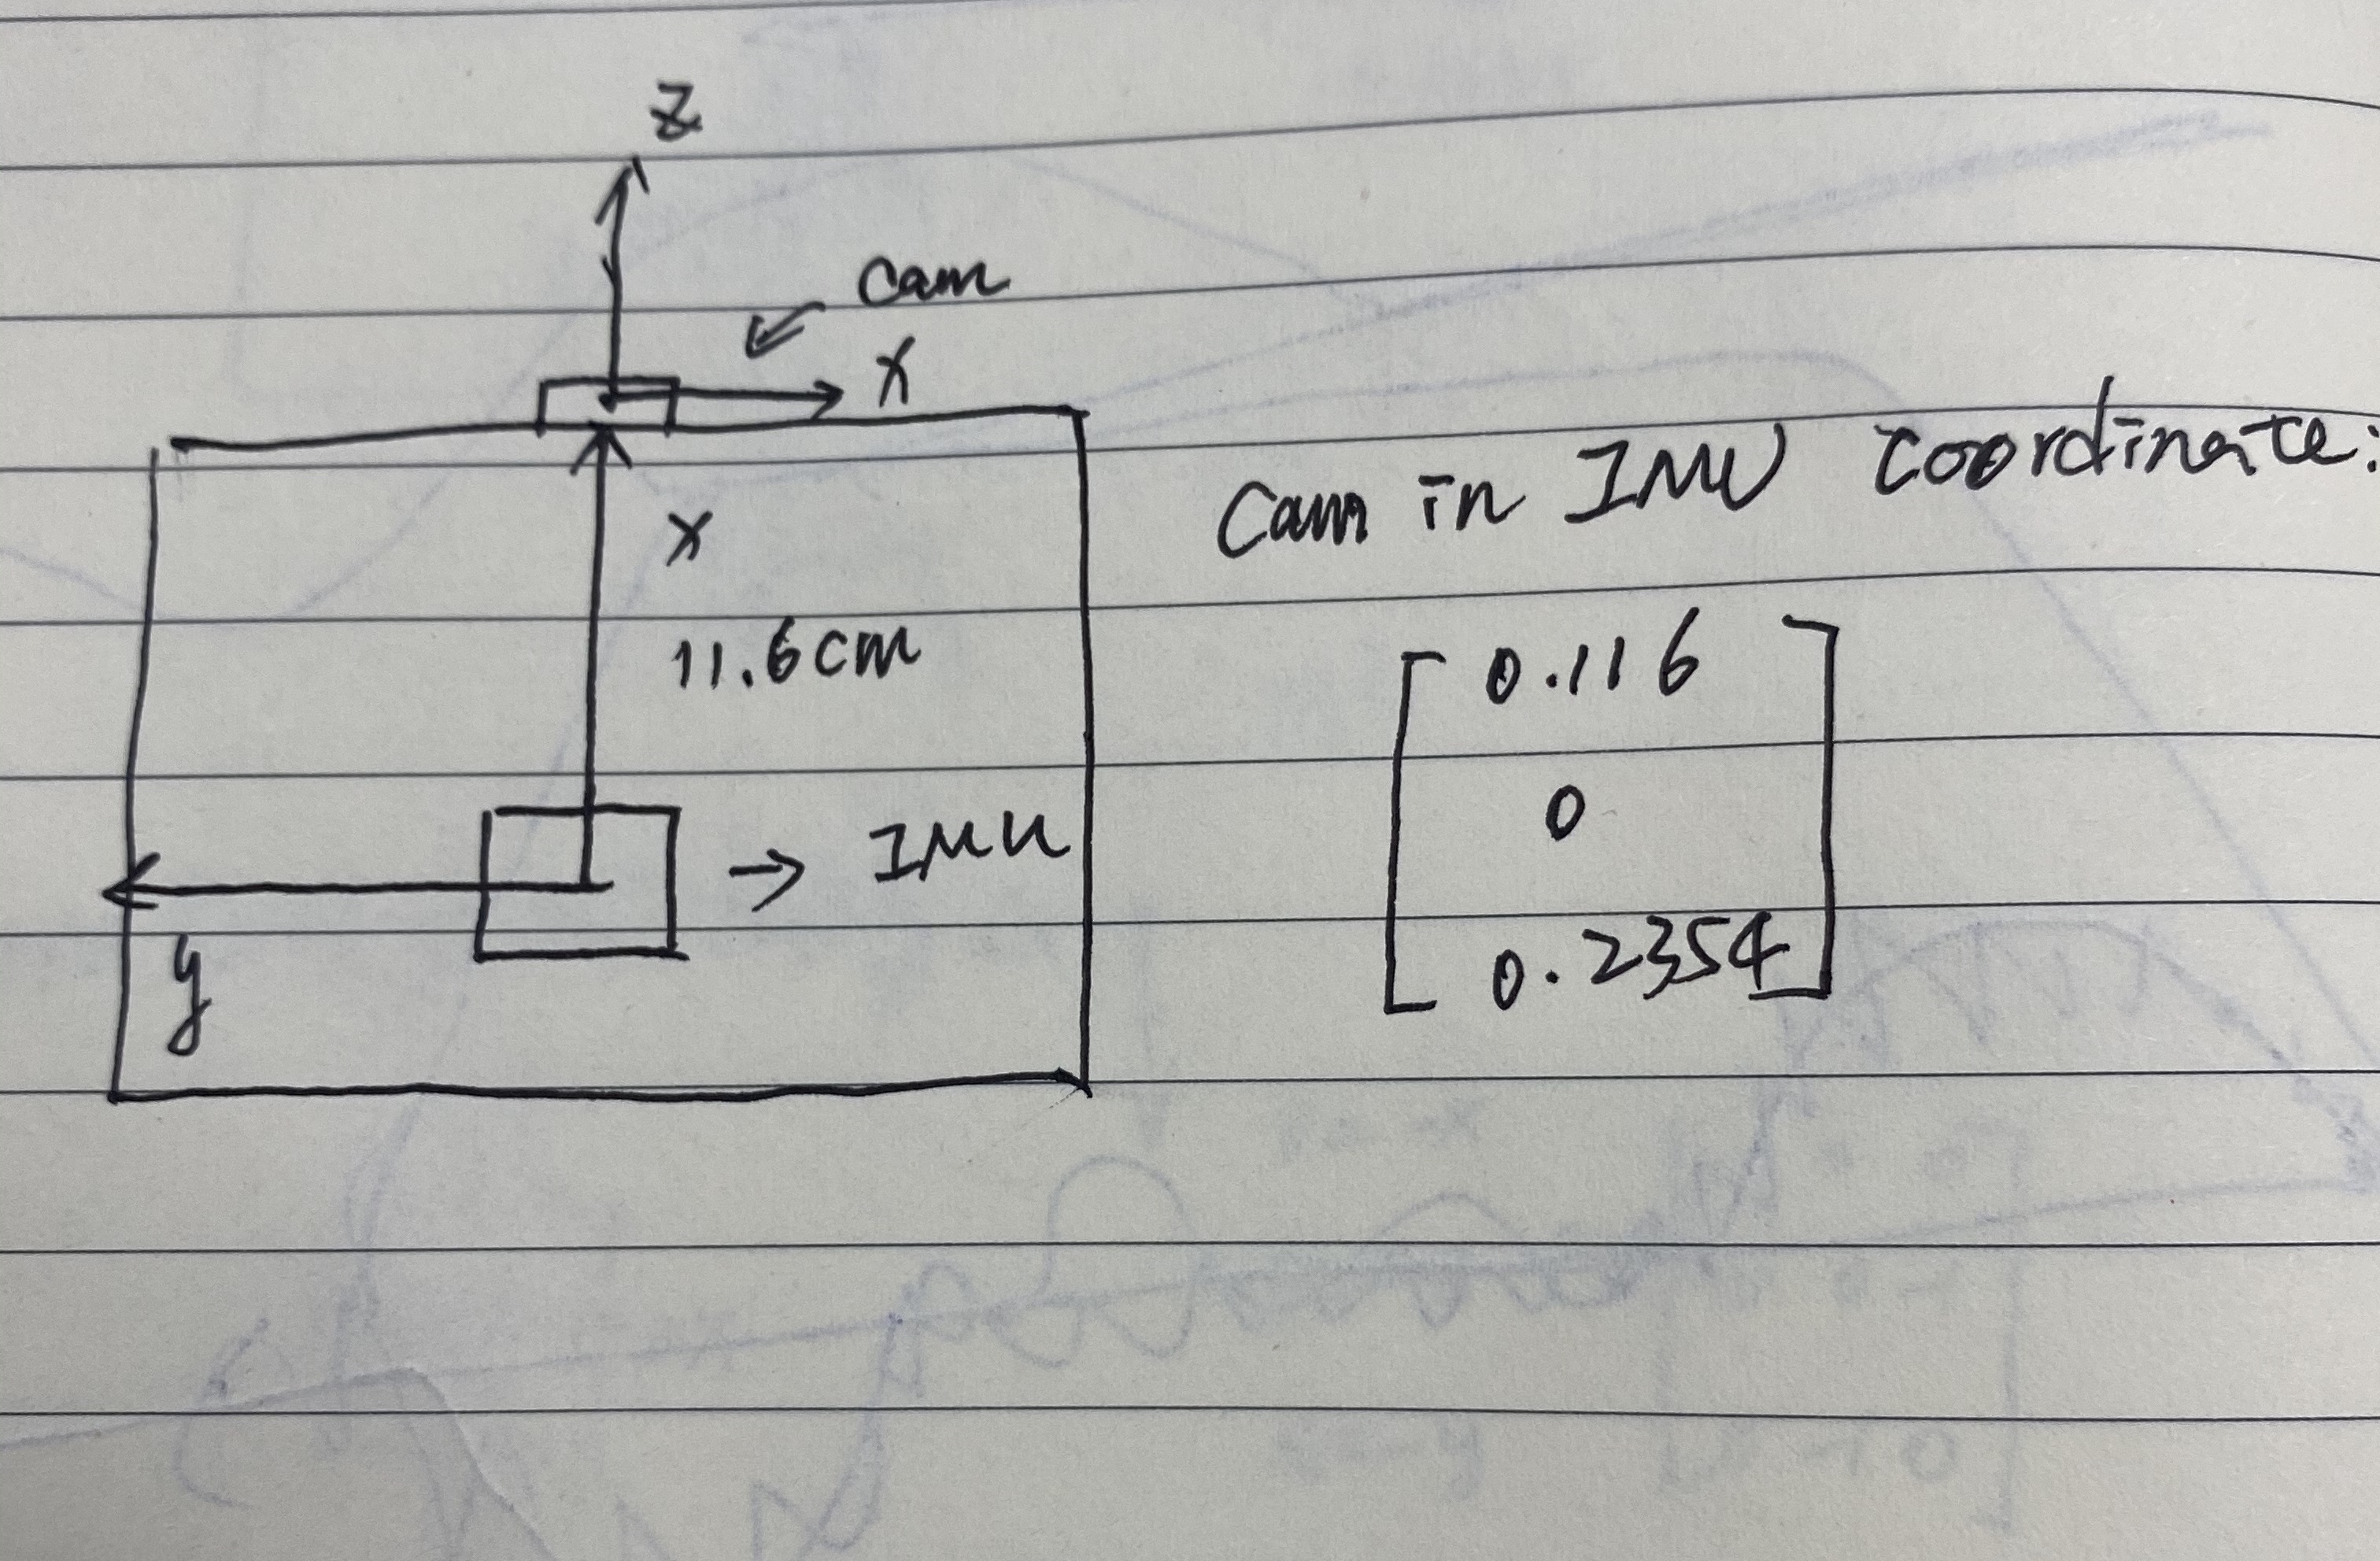 z
cam
x
x
11.6cm
→ IMU
y
Cam in IMU coordinate:
0.116
0
0.2354